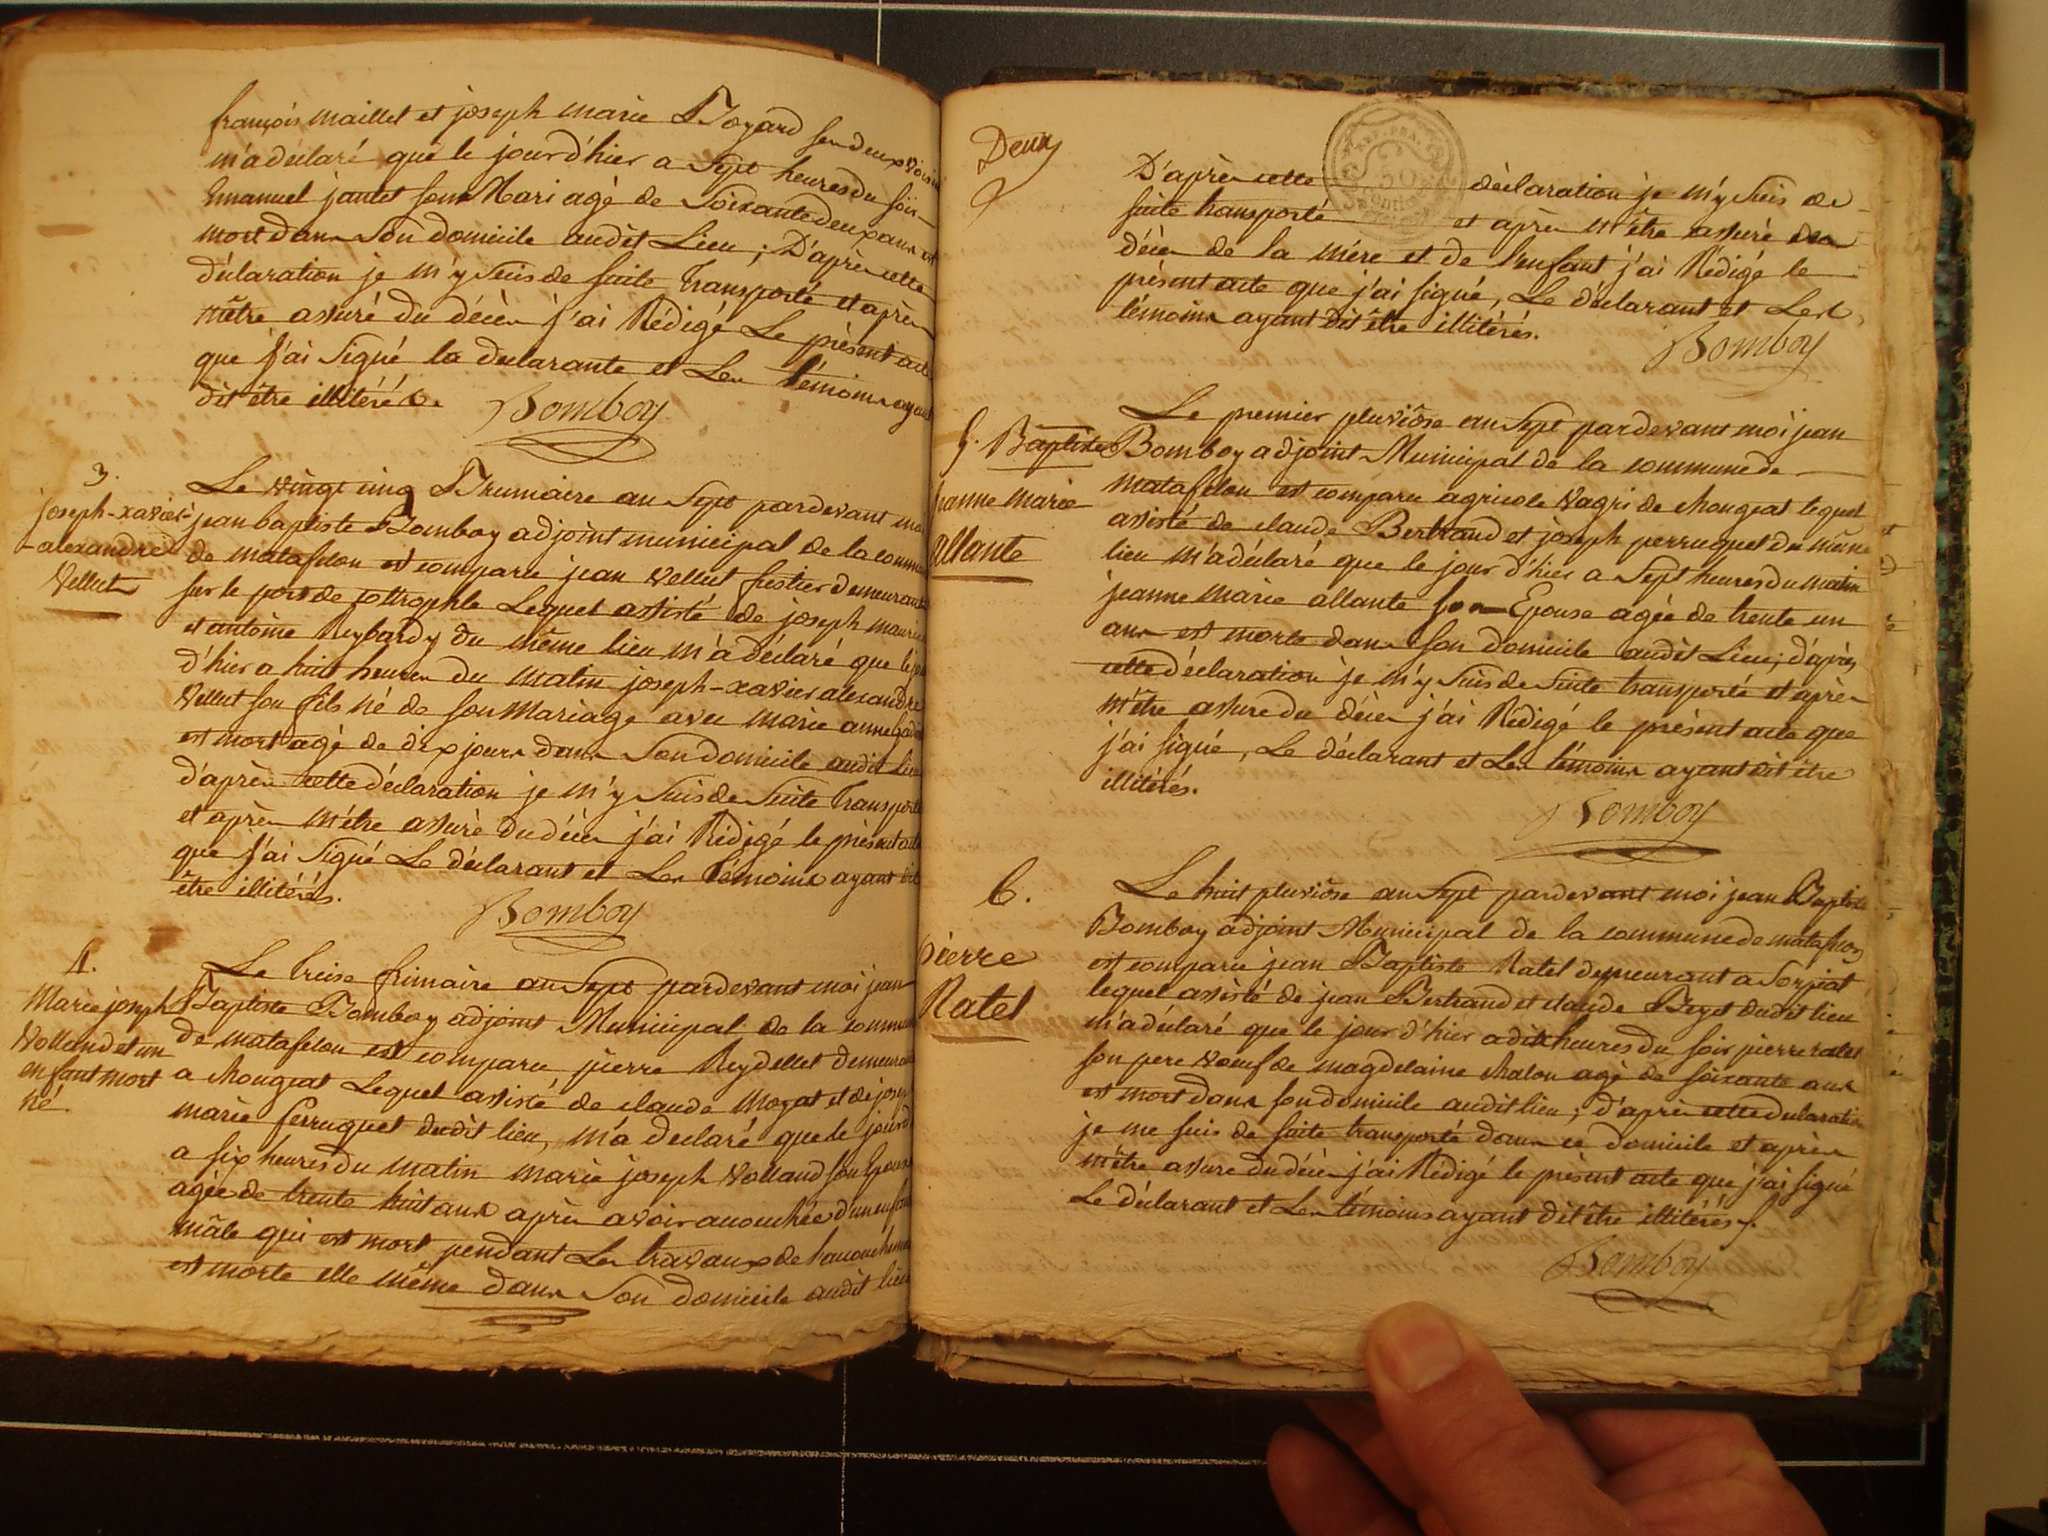 françois maillet et joseph marie Boyard ses deux voisins
m'a déclaré que le jour d'hier a Sept heures du soir
Emanuel jantet son Mari agé de Soixante deux ans est
mort dans Son domicile audit Lieu ; D'après cette
déclaration je m'y Suis de suite Transporté et après
m'être assuré du décès j'ai Rédigé Le présent acte
que j'ai Signé la declarante et Les témoins ayant
dit être illitérés.
Bomboy
3.
joseph-xavier
-alexandre
Vellut
Le vingt cinq Brumaire an Sept pardevant moi
jean baptiste Bomboy adjoint municipal de la commune
de matafelon est comparu jean Vellut demeurant
sur le port de Lequel assisté de joseph maurice
et antoine Reybardy du même lieu m'a déclaré que le jour
d'hier a huit heures du matin joseph-xavier alexandre
Vellut son fils né de son Mariage avec marie anne
est mort agé de dix jours dans Son domicile audit Lieu
d'après cette déclaration je m'y Suis de Suite Transporté
et après m'être assuré du décès j'ai Rédigé le présent acte
que j'ai Signé Le déclarant et Les Témoins ayant dit
être illitérés.
Bomboy
4.
Marie joseph
Volland et un
enfant mort
né
Le treise frimaire an Sept pardevant moi jean
Baptiste Bomboy adjoint Municipal de la commune
de matafelon est comparu pierre Reydellet demeurant
a chougeat Lequel assisté de claude moyat et de joseph
marie perruquet dudit lieu, m'a declaré que le jour d'
a six heures du matin marie joseph Volland son Epouse
agée de trente huit ans après avoir accouchée d'un enfant
mâle qui est mort pendant Les travaux de l'accouchement
est morte elle même dans Son domicile audit lieu
Deux
D'après cette déclaration je m'y Suis de
suite transporté et après m'être assuré des
décès de la mère et de l'enfant j'ai Rédigé le
présent acte que j'ai signé, Le déclarant et Les
témoins ayant dit être illitérés.
Bomboy
5.
jeanne marie
allante
Le premier pluviôse an Sept pardevant moi jean
Baptiste Bomboy adjoint Municipal de la commune de
matafelon est comparu agricole Vagri de chougeat lequel
assisté de claude Bertrand et joseph perruquet du même
lieu m'a déclaré que le jour d'hier a Sept heures du matin
jeanne marie allante son Epouse agée de trente un
ans est morte dans Son domicile audit Lieu ; d'après
cette déclaration je m'y Suis de Suite transporté et après
m'être assuré du décès j'ai Rédigé le présent acte que
j'ai signé, Le déclarant et Les témoins ayant dit être
illitérés.
Bomboy
6.
pierre
Ratel
Le huit pluviôse an Sept pardevant moi jean Baptiste
Bomboy adjoint Municipal de la commune de matafelon
est comparu jean Baptiste Ratel demeurant a Sorpiat
lequel assisté de jean Bertrand et claude Beget dudit lieu
m'a déclaré que le jour d'hier a dix heures du soir pierre ratel
son pere vœuf de magdelaine chaton agé de soixante ans
est mort dans son domicile audit lieu ; d'après cette declaration
je me suis de suite transporté dans ce domicile et après
m'être assuré du décès j'ai Rédigé le présent acte que j'ai signé
Le déclarant et Les témoins ayant dit être illitérés.
Bomboy